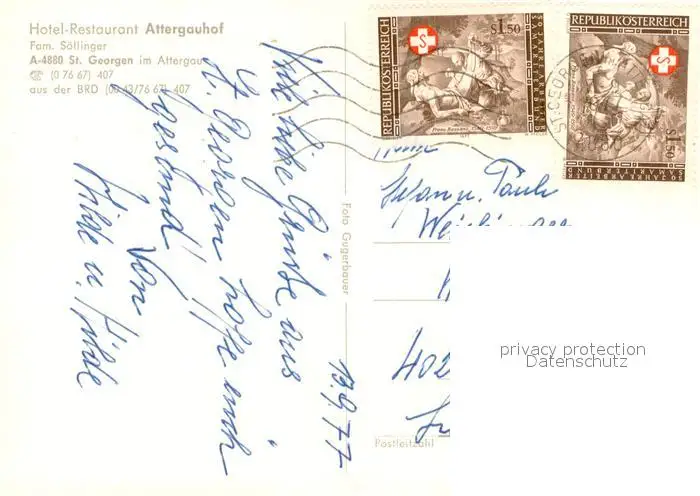 Hotel-Restaurant Attergauhof
Fam. Söllinger
A-4880 St. Georgen im Attergau
☎ (0 76 67) 407
aus der BRD (00 43/76 67) 407
Grüße aus
St. Georgen hoffe euch
gesund!
Von
Hilde u.
13.9.77
Foto Gugerbauer
REPUBLIK ÖSTERREICH
S 1.50
50 JAHRE ARBEITER
SAMARITERBUND
REPUBLIK ÖSTERREICH
S 1.50
50 JAHRE ARBEITER
SAMARITERBUND
ST. GEORGEN
402
Postleitzahl
privacy protection
Datenschutz